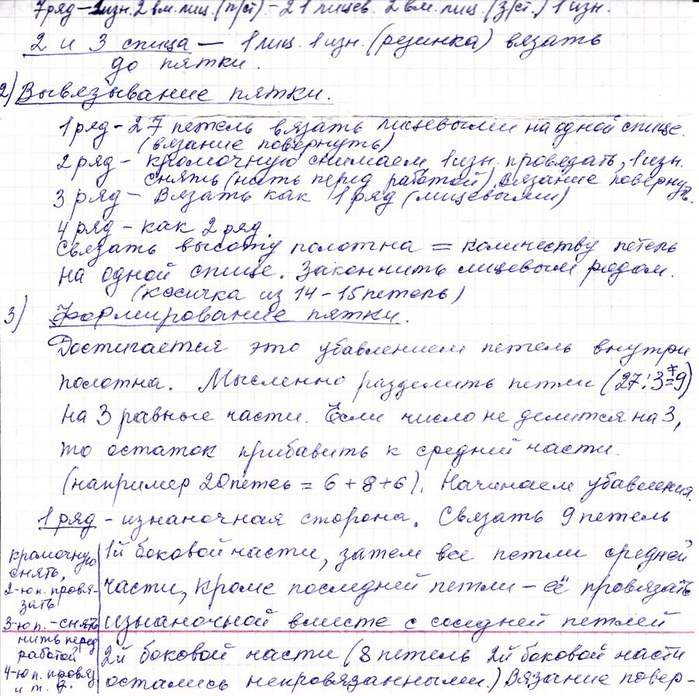 7ряд - 1изн. 2 вм. лиц. (п/ст) - 21 лицев. 2 вм. лиц. (з/ст.) 1 изн.
2 и 3 спица - 1 лиц. 1 изн. (резинка) вязать
до пятки.
2) Вывязывание пятки.
1 ряд - 27 петель вязать лицевыми на одной спице.
(вязание повернуть)
2 ряд - кромочную снимаем 1 изн. провязать, 1 изн.
снять (нить перед работой), вязание повернуть.
3 ряд - Вязать как 1 ряд (лицевыми)
4 ряд - как 2 ряд.
Связать высоту полотна = количеству петель
на одной спице. Закончить лицевым рядом.
(косичка из 14-15 петель)
3) Формирование пятки.
Достигается это убавлением петель внутри
полотна. Мысленно разделить петли (27:3=9)
на 3 равные части. Если число не делится на 3,
то остаток прибавить к средней части.
(например 20 петель = 6+8+6). Начинаем убавления.
1 ряд - изнаночная сторона. Связать 9 петель
1й боковой части, затем все петли средней
части, кроме последней петли - её провязать
изнаночной вместе с соседней петлей
2й боковой части (8 петель 2й боковой части
остались непровязанными.) Вязание повер-
кромочную
снять,
2-ю п. провя-
зать
3-ю п. - снять
нить перед
работой
4-ю п. провяз
и т. д.